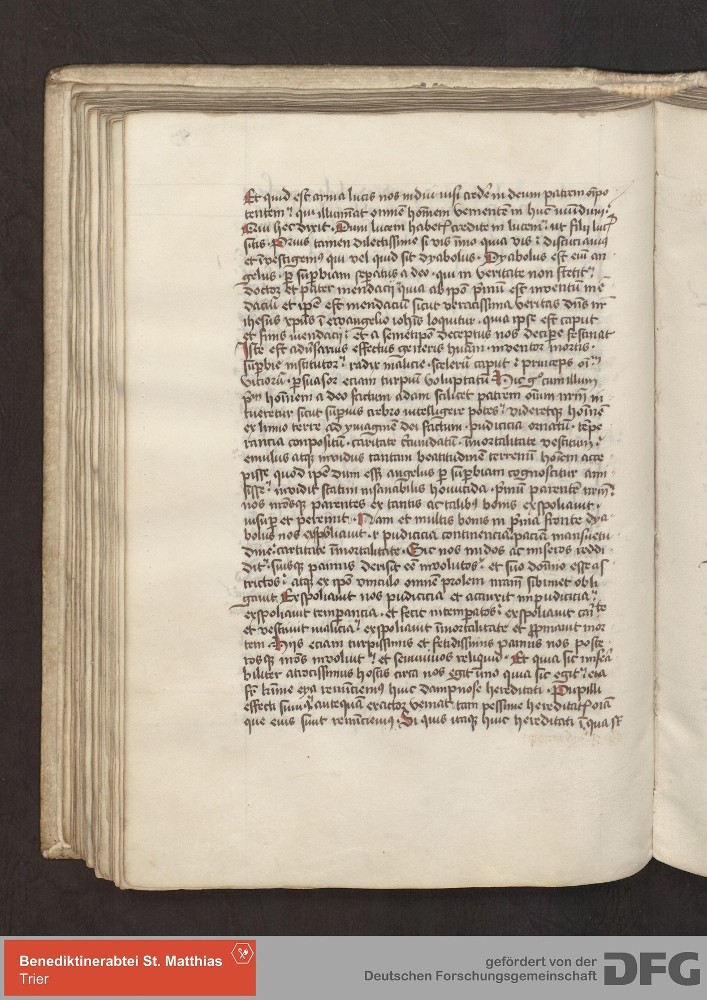 Et quid est arma lucis nos indui nisi cred'e in deum patrem oīpo
tentem qui illumīat omnē homīem venientē in hūc mūndum
Qui hec dixit. Dum lucem habet credite in lucem ut filij luc
sitis. Prius tamen dilectissime si vis īmo quia vis discuciamus
et īvestigemus qui vel quid sit dyabolus. Dyabolus est eī an
gelus. p sup̄biam sep̄atus a deo. qui in veritate non stetit
doctor et pater mendacij quia ab ip̄o p̄mū est inventū mē
daciū et ip̄e est mendaciū sicut veracissima veritas dn̄s nr̄
ihesus xp̄us ī ewangelio ioh̄is loquitur. quia ipse est caput
et finis mendacij et a semetip̄o deceptus nos decip̄e festinat
Iste est adūsarius effectus generis humāi. inventor mortis.
sup̄bie institutor radix malicie. scelerū caput princeps oīm
viciorū. p̄suasor eciam turpium voluptatū Hic gͦ cum illum
p̄m homīem a deo factum adam scilicet patrem oīum nr̄m in
tueretur sicut sup̄ius crebro intelligere potes videretqꝫ homīe
ex limo terre ad ymaginē dei factum. pudicicia ornatū. tēpe
rancia conpositū. caritate c̄cūdatū. īmortalitate vestitum
emulus atqꝫ invidus tantam beatitudinē terrenū homīem acce
pisse quod ip̄e dum esset angelus p sup̄biam cognoscitur ami
sisse invidit statim insaciabilis homicida. p̄mū parentē nr̄m
nos nr̄osqꝫ parentes ex tantis ac talibꝰ bonis exspoliavit.
insup̄ et p̄emit. Nam et multis bonis in p̄ma fronte dya
bolus nos exspoliavit. pudicicia continencia paciā mansuetu
dine caritate īmortalitate. Sic nos nudos ac miseros reddi
dit. suisqꝫ pannis dersit eē involutos et suo dominio esse as
trictos atqꝫ ex ip̄o vinculo omnē prolem nr̄am sibimet obli
gavit Exspoliavit nos pudicicia et adiunxit impudicicia
exspoliavit temp̄ancia. et fecit intemperatos exspoliavit cari͛te
et vestivit malicia exspoliavit īmortalitate et p̄pinavit mor
tem. Hijs eciam turpissimis et fetidissimis pannis nos poste
rosqꝫ nr̄os involvit et semivivos reliquid. Et quia sic miserā
biliter atrocissimus hostis circa nos egit īmo quia sic egit
renūciemus huic dampnose hereditati. Pupilli
effecti sumus antequam exactor veniat tam pessime hereditat oīa
que eius sunt renūciemus. Si quis itaqꝫ huic hereditati ī qua
Benediktinerabtei St. Matthias
Trier
gefördert von der
Deutschen Forschungsgemeinschaft
DFG